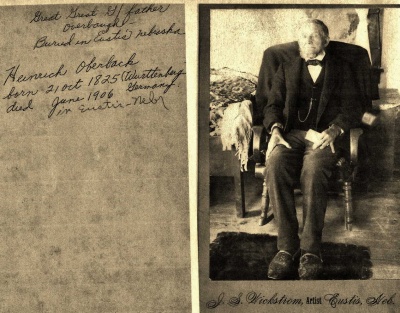 Great Great G/father
Overbaugh
Buried in Eustis Nebraska
Heinrich Oberlock
born 21 oct 1825 (Wurttenburg
died June 1906 Germany
in Eustis - Nebr
J. S. Wickstrom, Artist Eustis, Neb.